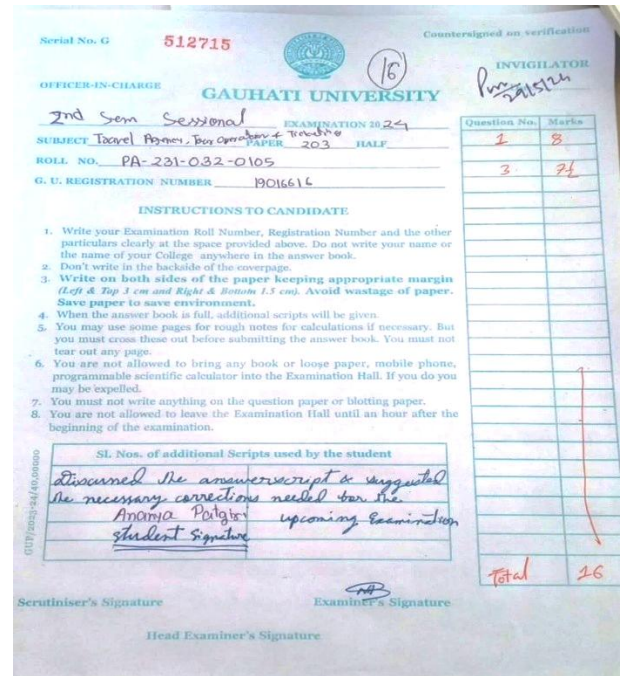 Serial No. G 512715
Countersigned on verification
16
INVIGILATOR
29/5/24
OFFICER-IN-CHARGE
GAUHATI UNIVERSITY
2nd Sem Sessional EXAMINATION 2024
SUBJECT Travel Agency, Tour Operation & PAPER 203 HALF
ROLL NO. PA-231-032-0105
G. U. REGISTRATION NUMBER 19016616
Question No. Marks
1 8
3 7½
INSTRUCTIONS TO CANDIDATE
1. Write your Examination Roll Number, Registration Number and the other
particulars clearly at the space provided above. Do not write your name or
the name of your College anywhere in the answer book.
2. Don't write in the backside of the coverpage.
3. Write on both sides of the paper keeping appropriate margin
(Left & Top 3 cm and Right & Bottom 1.5 cm). Avoid wastage of paper.
Save paper to save environment.
4. When the answer book is full, additional scripts will be given.
5. You may use some pages for rough notes for calculations if necessary. But
you must cross these out before submitting the answer book. You must not
tear out any page.
6. You are not allowed to bring any book or loose paper, mobile phone,
programmable scientific calculator into the Examination Hall. If you do you
may be expelled.
7. You must not write anything on the question paper or blotting paper.
8. You are not allowed to leave the Examination Hall until an hour after the
beginning of the examination.
GUP/2023-24/40,00000
Sl. Nos. of additional Scripts used by the student
Discussed the answerscript & suggested
the necessary corrections needed for the
Ananya Patgiri upcoming Examination
student signature
Total 16
Scrutiniser's Signature
Examiner's Signature
Head Examiner's Signature